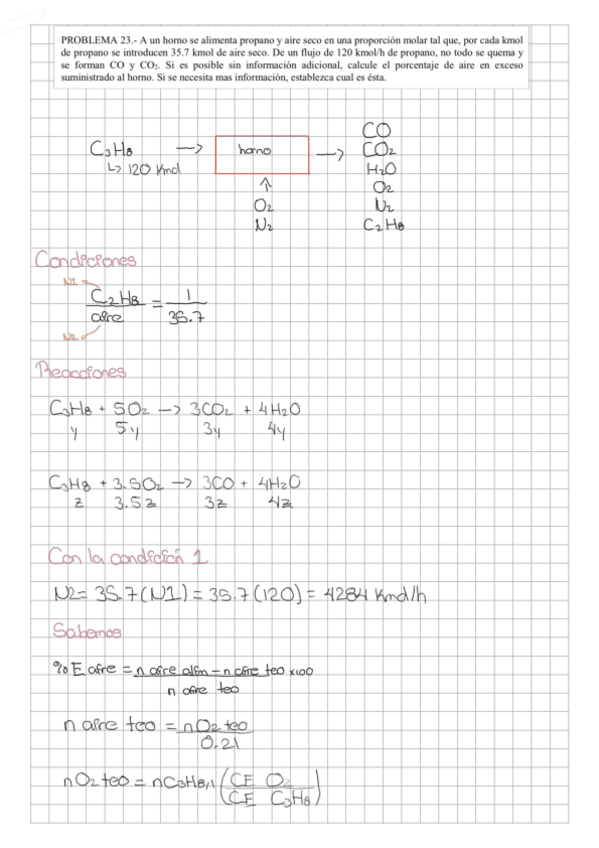 PROBLEMA 23.- A un horno se alimenta propano y aire seco en una proporción molar tal que, por cada kmol
de propano se introducen 35.7 kmol de aire seco. De un flujo de 120 kmol/h de propano, no todo se quema y
se forman CO y CO₂. Si es posible sin información adicional, calcule el porcentaje de aire en exceso
suministrado al horno. Si se necesita mas información, establezca cual es ésta.
CO
C3H8 → horno → CO2
↳ 120 Kmol H2O
↑ O2
O2 N2
N2 C2H8
Condiciones
N1
C2H8 / aire = 1 / 35.7
N2
Reacciones
C3H8 + 5O2 → 3CO2 + 4H2O
y 5y 3y 4y
C3H8 + 3.5O2 → 3CO + 4H2O
z 3.5z 3z 4z
Con la condición 1
N2 = 35.7(N1) = 35.7(120) = 4284 Kmol/h
Sabemos
%E aire = n aire alim - n aire teo x100
n aire teo
n aire teo = nO2 teo
0.21
nO2 teo = nC3H8,1 (CE O2 / CE C3H8)